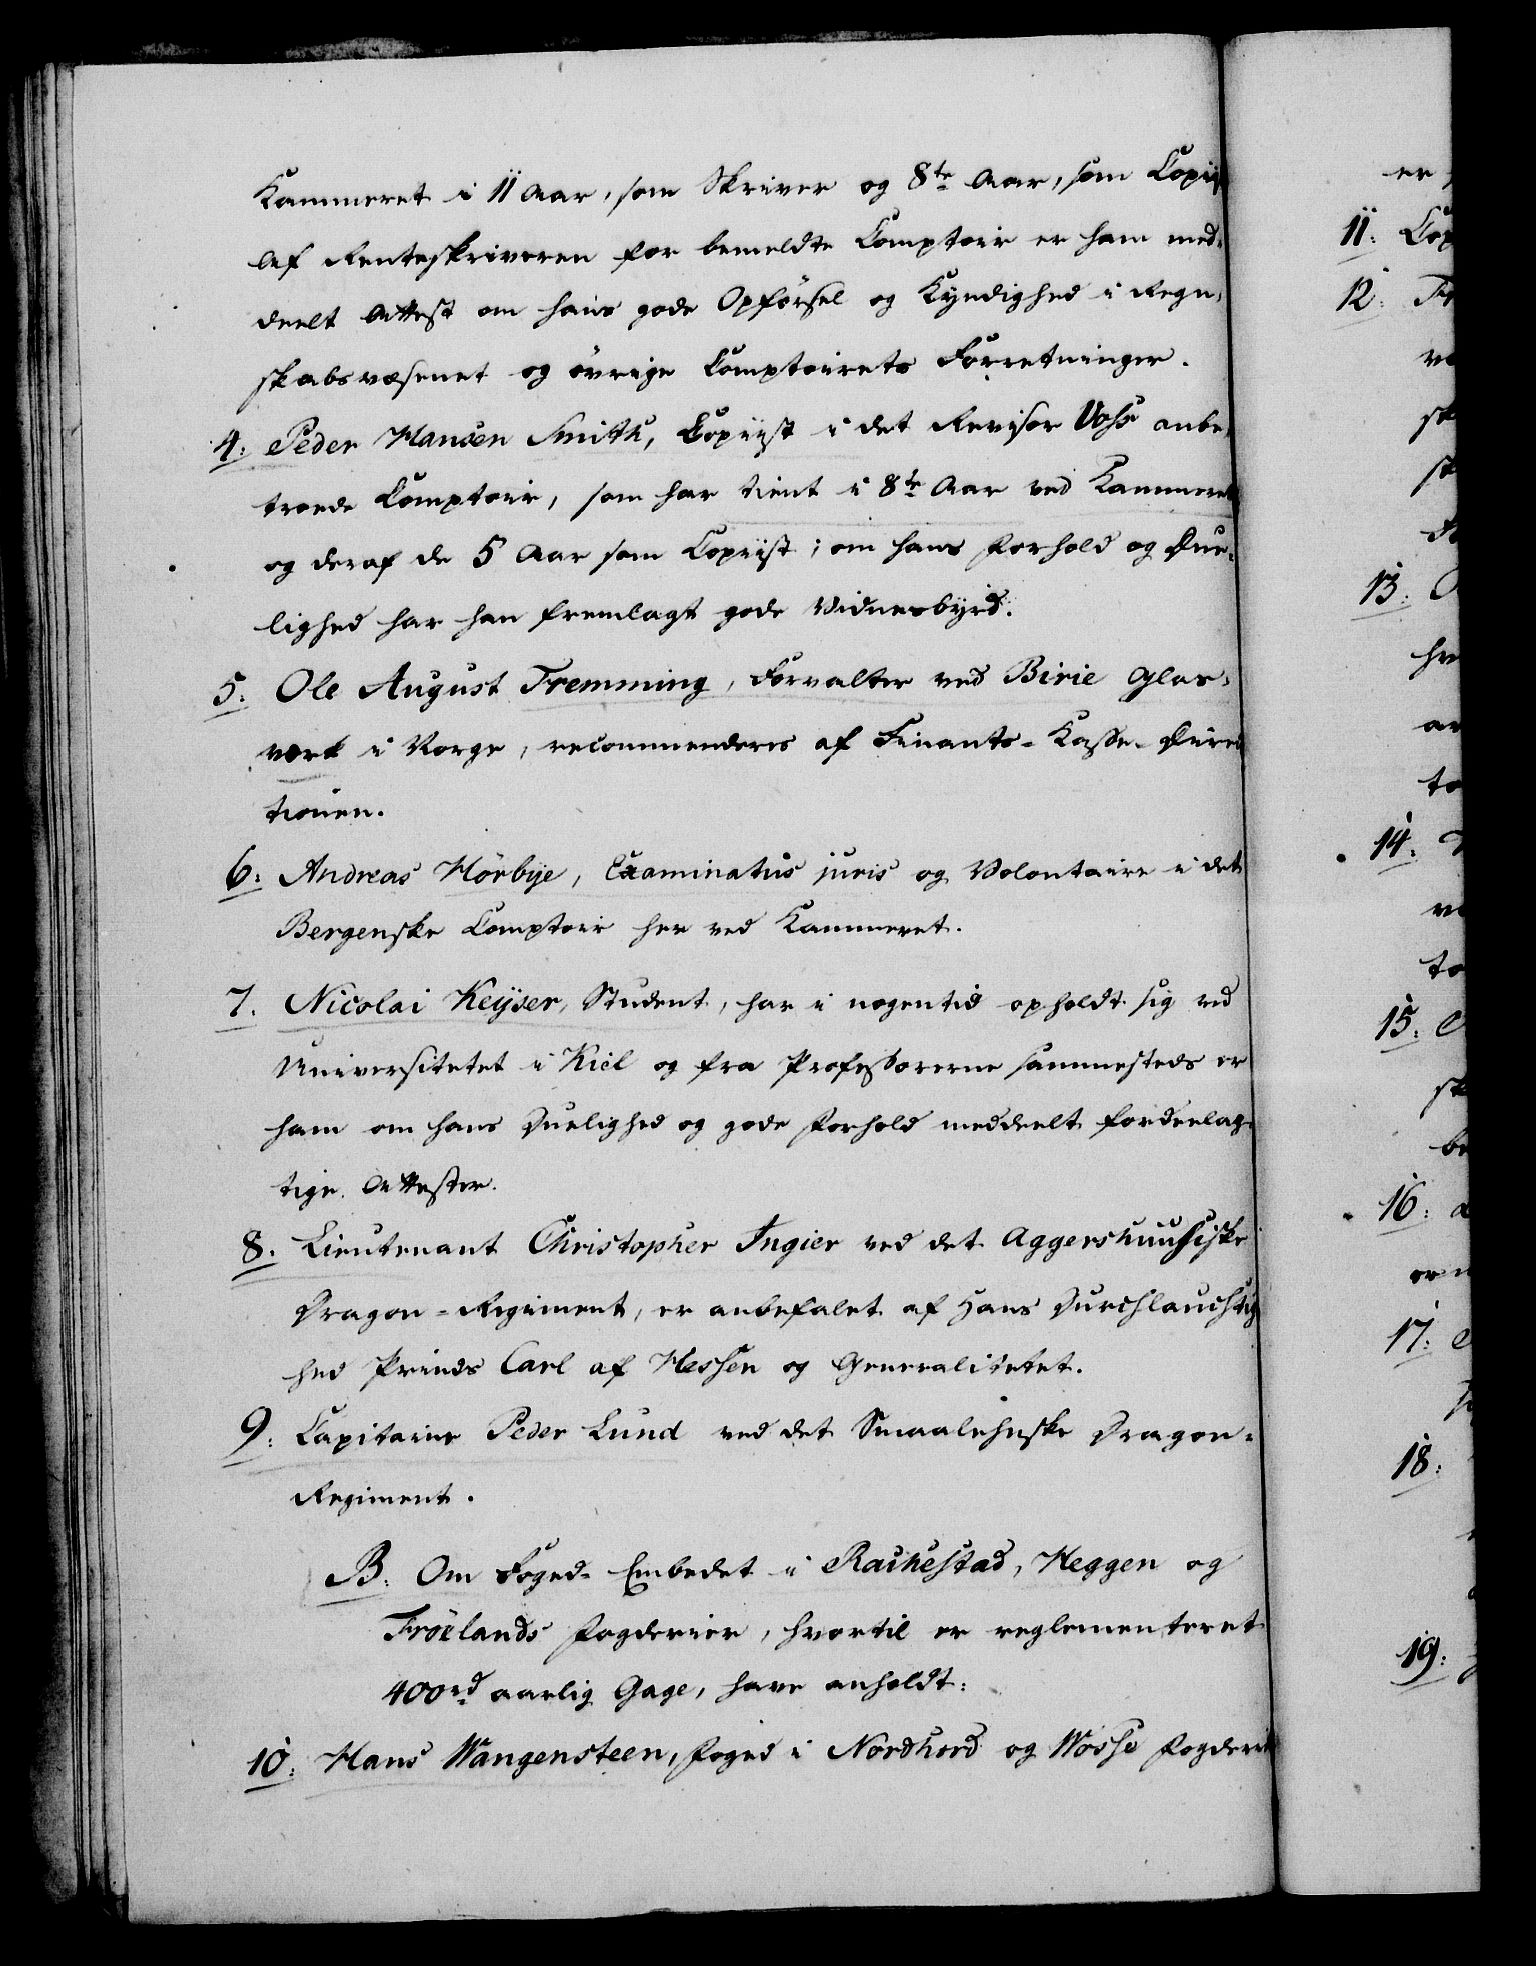 Kammeret i 11 Aar, som Skriver og 8te Aar, som Copiist
Af Renteskriveren for bemeldte Comptoir er ham med-
deelt Attest om hans gode Opförsel og Kyndighed i Regn-
skabsvæsenet og övrige Comptoirets Forretninger.
4: Peder Hansen Smith, Copiist i det Revisor Voss anbe-
troede Comptoir, som har tient i 8te Aar ved Kammeret
og deraf de 5 Aar som Copiist; om hans Forhold og Due-
lighed har han fremlagt gode Vidnesbyrd.
5: Ole August Tremming, Forvalter ved Birie Glas-
værk i Norge, recommenderes af Finants-Kasse-Direc
tionen.
6: Andreas Hörbye, Examinatus juris og Volontaire i det
Bergenske Comptoir her ved Kammeret.
7. Nicolai Keyser, Student, har i nogentid opholdt sig ved
Universitetet i Kiel og fra Professorerne sammesteds er
ham om hans Duelighed og gode Forhold meddeelt fordeelag-
tige Attester.
8. Lieutenant Christopher Ingier ved det Aggershuusiske
Dragon-Regiment, er anbefalet af Hans Durchlauchtig
hed Prinds Carl af Hessen og Generalitetet.
9: Capitaine Peder Lund ved det Smaalehnske Dragon-
Regiment.
B: Om Foged-Embedet i Rachestad, Heggen og
Fröelands Fogderier, hvortil er reglementeret
400rd aarlig Gage, have anholdt:
10: Hans Wangensteen, Foged i Nordhord og Wosse Fogderie
er
11: Cop
12:
13:
14:
15:
16:
17:
18:
19: